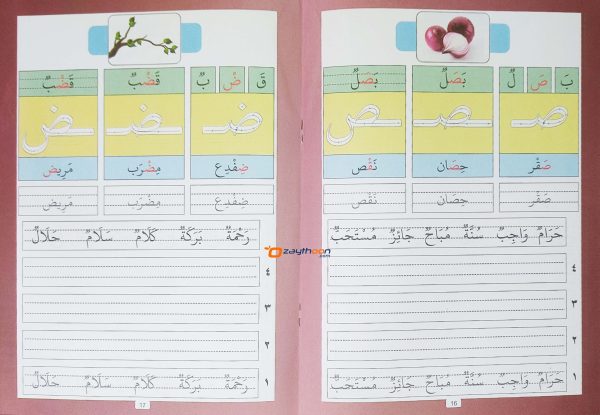 بَ صَ لٌ بَصَلٌ بَصَلٌ
صـ ـصـ ـص
صَقْر حِصَان نَقْص
صَقْر حِصَان نَقْص
حَرَامٌ وَاجِبٌ سُنَّةٌ مُبَاحٌ جَائِزٌ مُسْتَحَبٌّ
٤
٣
٢
١ حَرَامٌ وَاجِبٌ سُنَّةٌ مُبَاحٌ جَائِزٌ مُسْتَحَبٌّ
16
قَ ضْ بٌ قَضْبٌ قَضْبٌ
ضـ ـضـ ـض
ضِفْدِع مِضْرَب مَرِيض
ضِفْدِع مِضْرَب مَرِيض
رَحْمَةٌ بَرَكَةٌ كَلَامٌ سَلَامٌ حَلَالٌ
٤
٣
٢
١ رَحْمَةٌ بَرَكَةٌ كَلَامٌ سَلَامٌ حَلَالٌ
17
ozaythoon.com